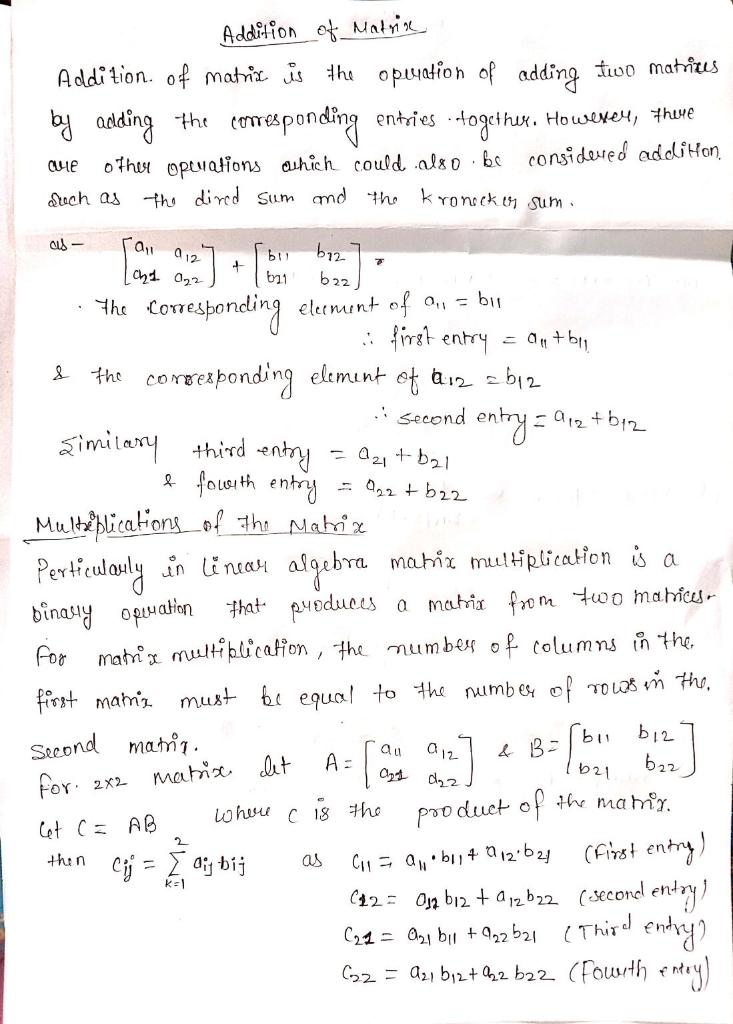 Addition of Matrix
Addition. of matrix is the operation of adding two matrixes
by adding the corresponding entries together. However, there
are other operations which could also be considered addition.
Such as the dired sum and the kronecker sum.
as – [a11 a12; a21 a22] + [b11 b12; b21 b22] =
. The corresponding element of a11 = b11
∴ first entry = a11 + b11
& the corresponding element of a12 = b12
∴ second entry = a12 + b12
Similary third entry = a21 + b21
& fourth entry = a22 + b22
Multiplications of the Matrix
Perticularly in linear algebra matrix multiplication is a
binary operation that produces a matrix from two matrices.
For matrix multiplication, the number of columns in the
first matrix must be equal to the number of rows in the
Second matrix.
For 2x2 matrix let A = [a11 a12; a21 a22] & B = [b11 b12; b21 b22]
let C = AB where c is the product of the matrix.
then cij = Σ(k=1 to 2) aij bij as C11 = a11·b11 + a12·b21 (First entry)
C12 = a11 b12 + a12 b22 (second entry)
C21 = a21 b11 + a22 b21 (Third entry)
C22 = a21 b12 + a22 b22 (Fourth entry)